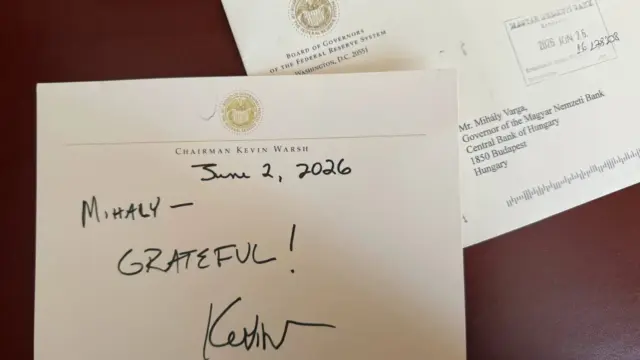 BOARD OF GOVERNORS
OF THE FEDERAL RESERVE SYSTEM
WASHINGTON, D.C. 20551
MAGYAR NEMZETI BANK
2026
Mr. Mihály Varga,
Governor of the Magyar Nemzeti Bank
Central Bank of Hungary
1850 Budapest
Hungary
CHAIRMAN KEVIN WARSH
June 2, 2026
MIHALY —
GRATEFUL!
Kevin